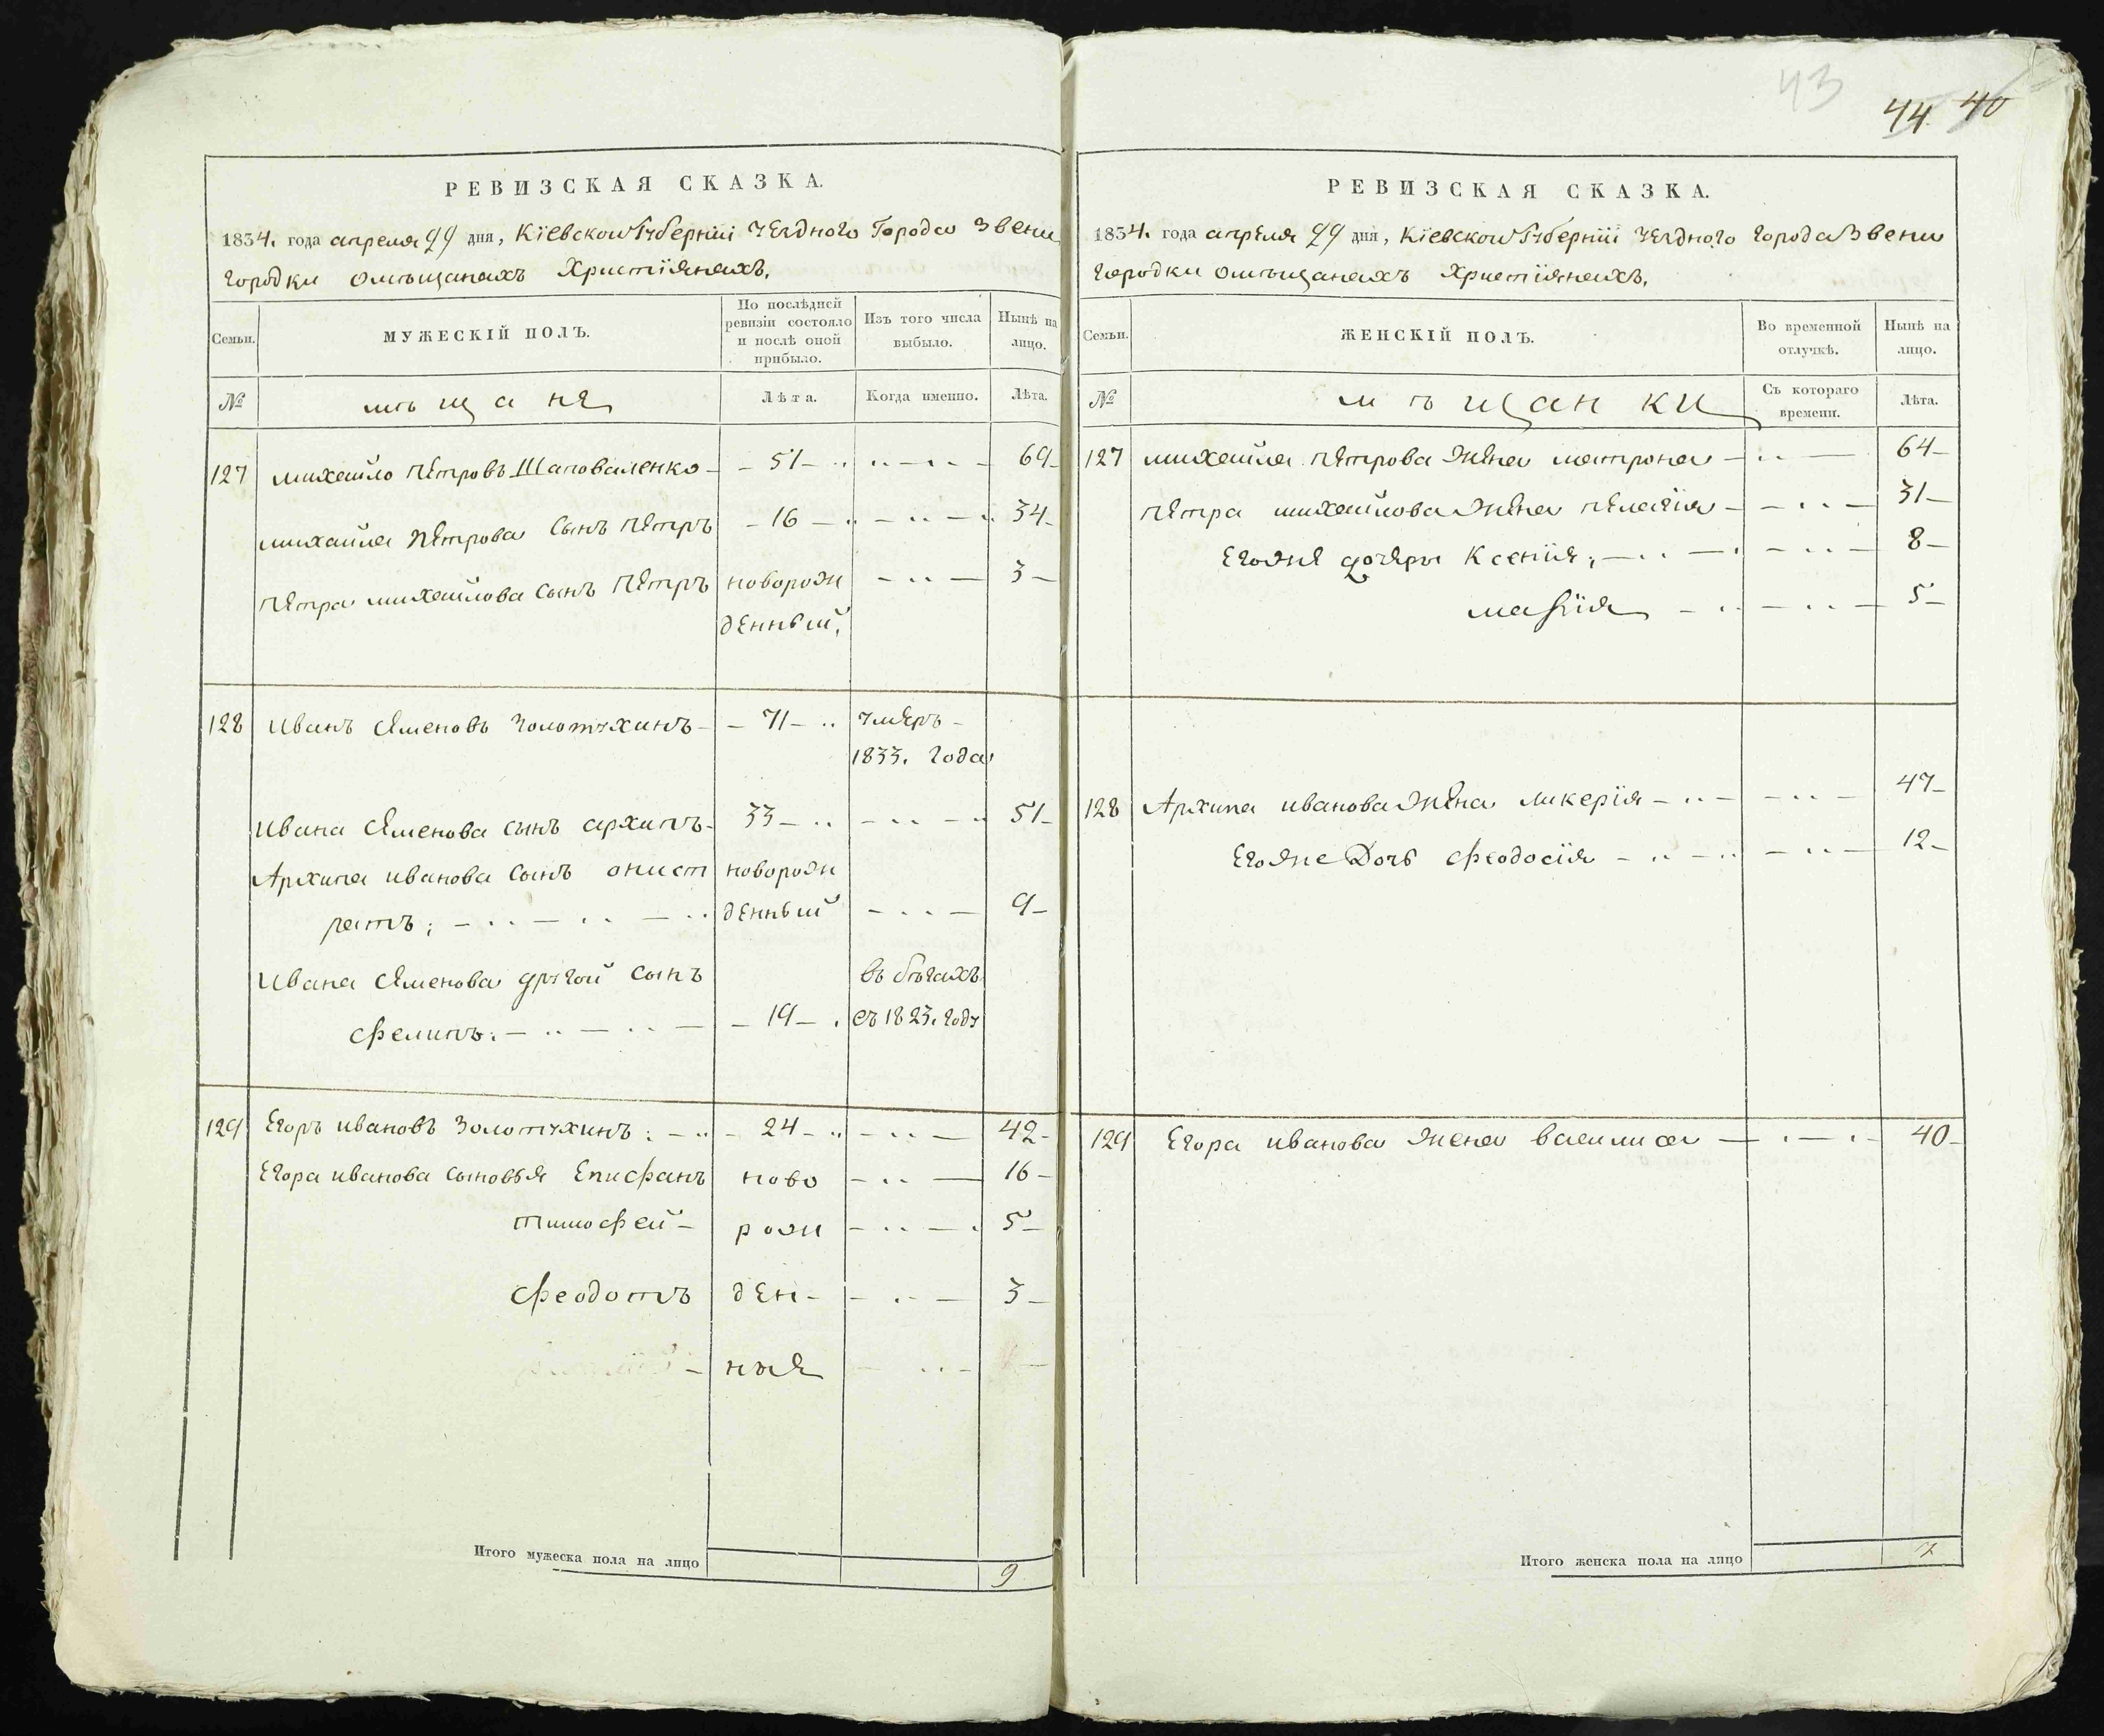 43
44 40
РЕВИЗСКАЯ СКАЗКА.
1834. года апреля 29 дня, Кіевской Губерніи уездного Города Звени
городки омѣщанахъ Христіянахъ.
Семьи.
МУЖЕСКІЙ ПОЛЪ.
По послѣдней ревизіи состояло и послѣ оной прибыло.
Изъ того числа выбыло.
Нынѣ на лицо.
№
мѣщане
Лѣта.
Когда именно.
Лѣта.
127 михайло петровъ Шаповаленко - 51 69
михайла петрова сынъ петръ - 16 34
петра михайлова сынъ петръ новорож 3
денный.
128 Иванъ Семеновъ Золотухинъ - 71 умеръ
1833. года
Ивана Семенова сынъ архипъ 33 51
Архипа иванова сынъ онист новорож
ратъ; денный 9
Ивана Семенова другой сынъ въ бѣгахъ
Филипъ. 19 съ 1823. году
129 Егоръ ивановъ Золотухинъ: 24 42
Егора иванова сыновья Епифанъ ново 16
тимофей рож 5
Феодотъ ден- 3
ныя
Итого мужеска пола на лицо 9
РЕВИЗСКАЯ СКАЗКА.
1834. года апреля 29 дня, Кіевской Губерніи уездного города Звени
городки омѣщанахъ Христіянахъ.
Семьи.
ЖЕНСКІЙ ПОЛЪ.
Во временной отлучкѣ.
Нынѣ на лицо.
№
мѣщанки
Съ котораго времени.
Лѣта.
127 михайла петрова жена матрона 64
петра михайлова жена пелагія 31
Егоже дочери Ксенія; 8
марія 5
128 Архипа иванова жена ликерія 47
Егоже Дочь Феодосія 12
129 Егора иванова жена василиса 40
Итого женска пола на лицо 7